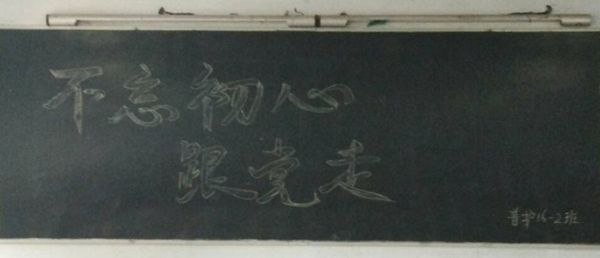 不忘初心
跟党走
普护16-2班